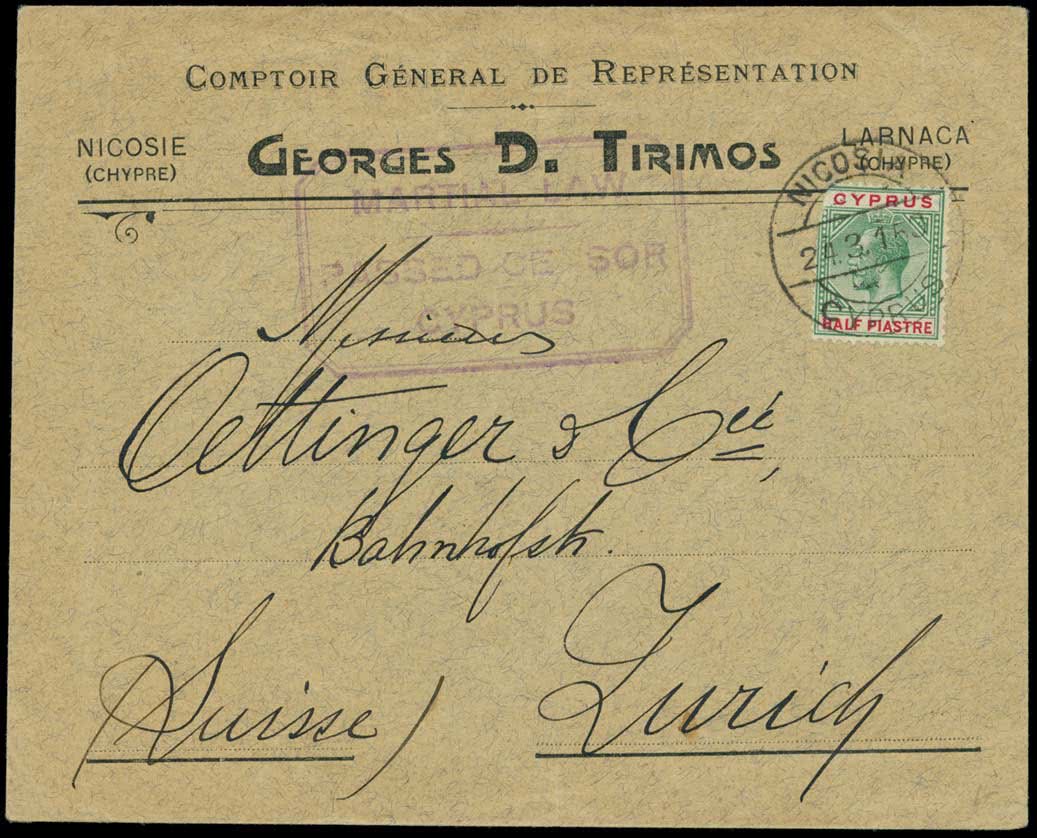 COMPTOIR GÉNERAL DE REPRÉSENTATION
NICOSIE
(CHYPRE)
GEORGES D. TIRIMOS
LARNACA
(CHYPRE)
MARTIAL LAW
PASSED CE SOR
CYPRUS
NICOSIA
24.3.15
CYPRUS
CYPRUS
HALF PIASTRE
Messieurs
Oettinger & Cié,
Bahnhofstr.
Zurich
(Suisse)